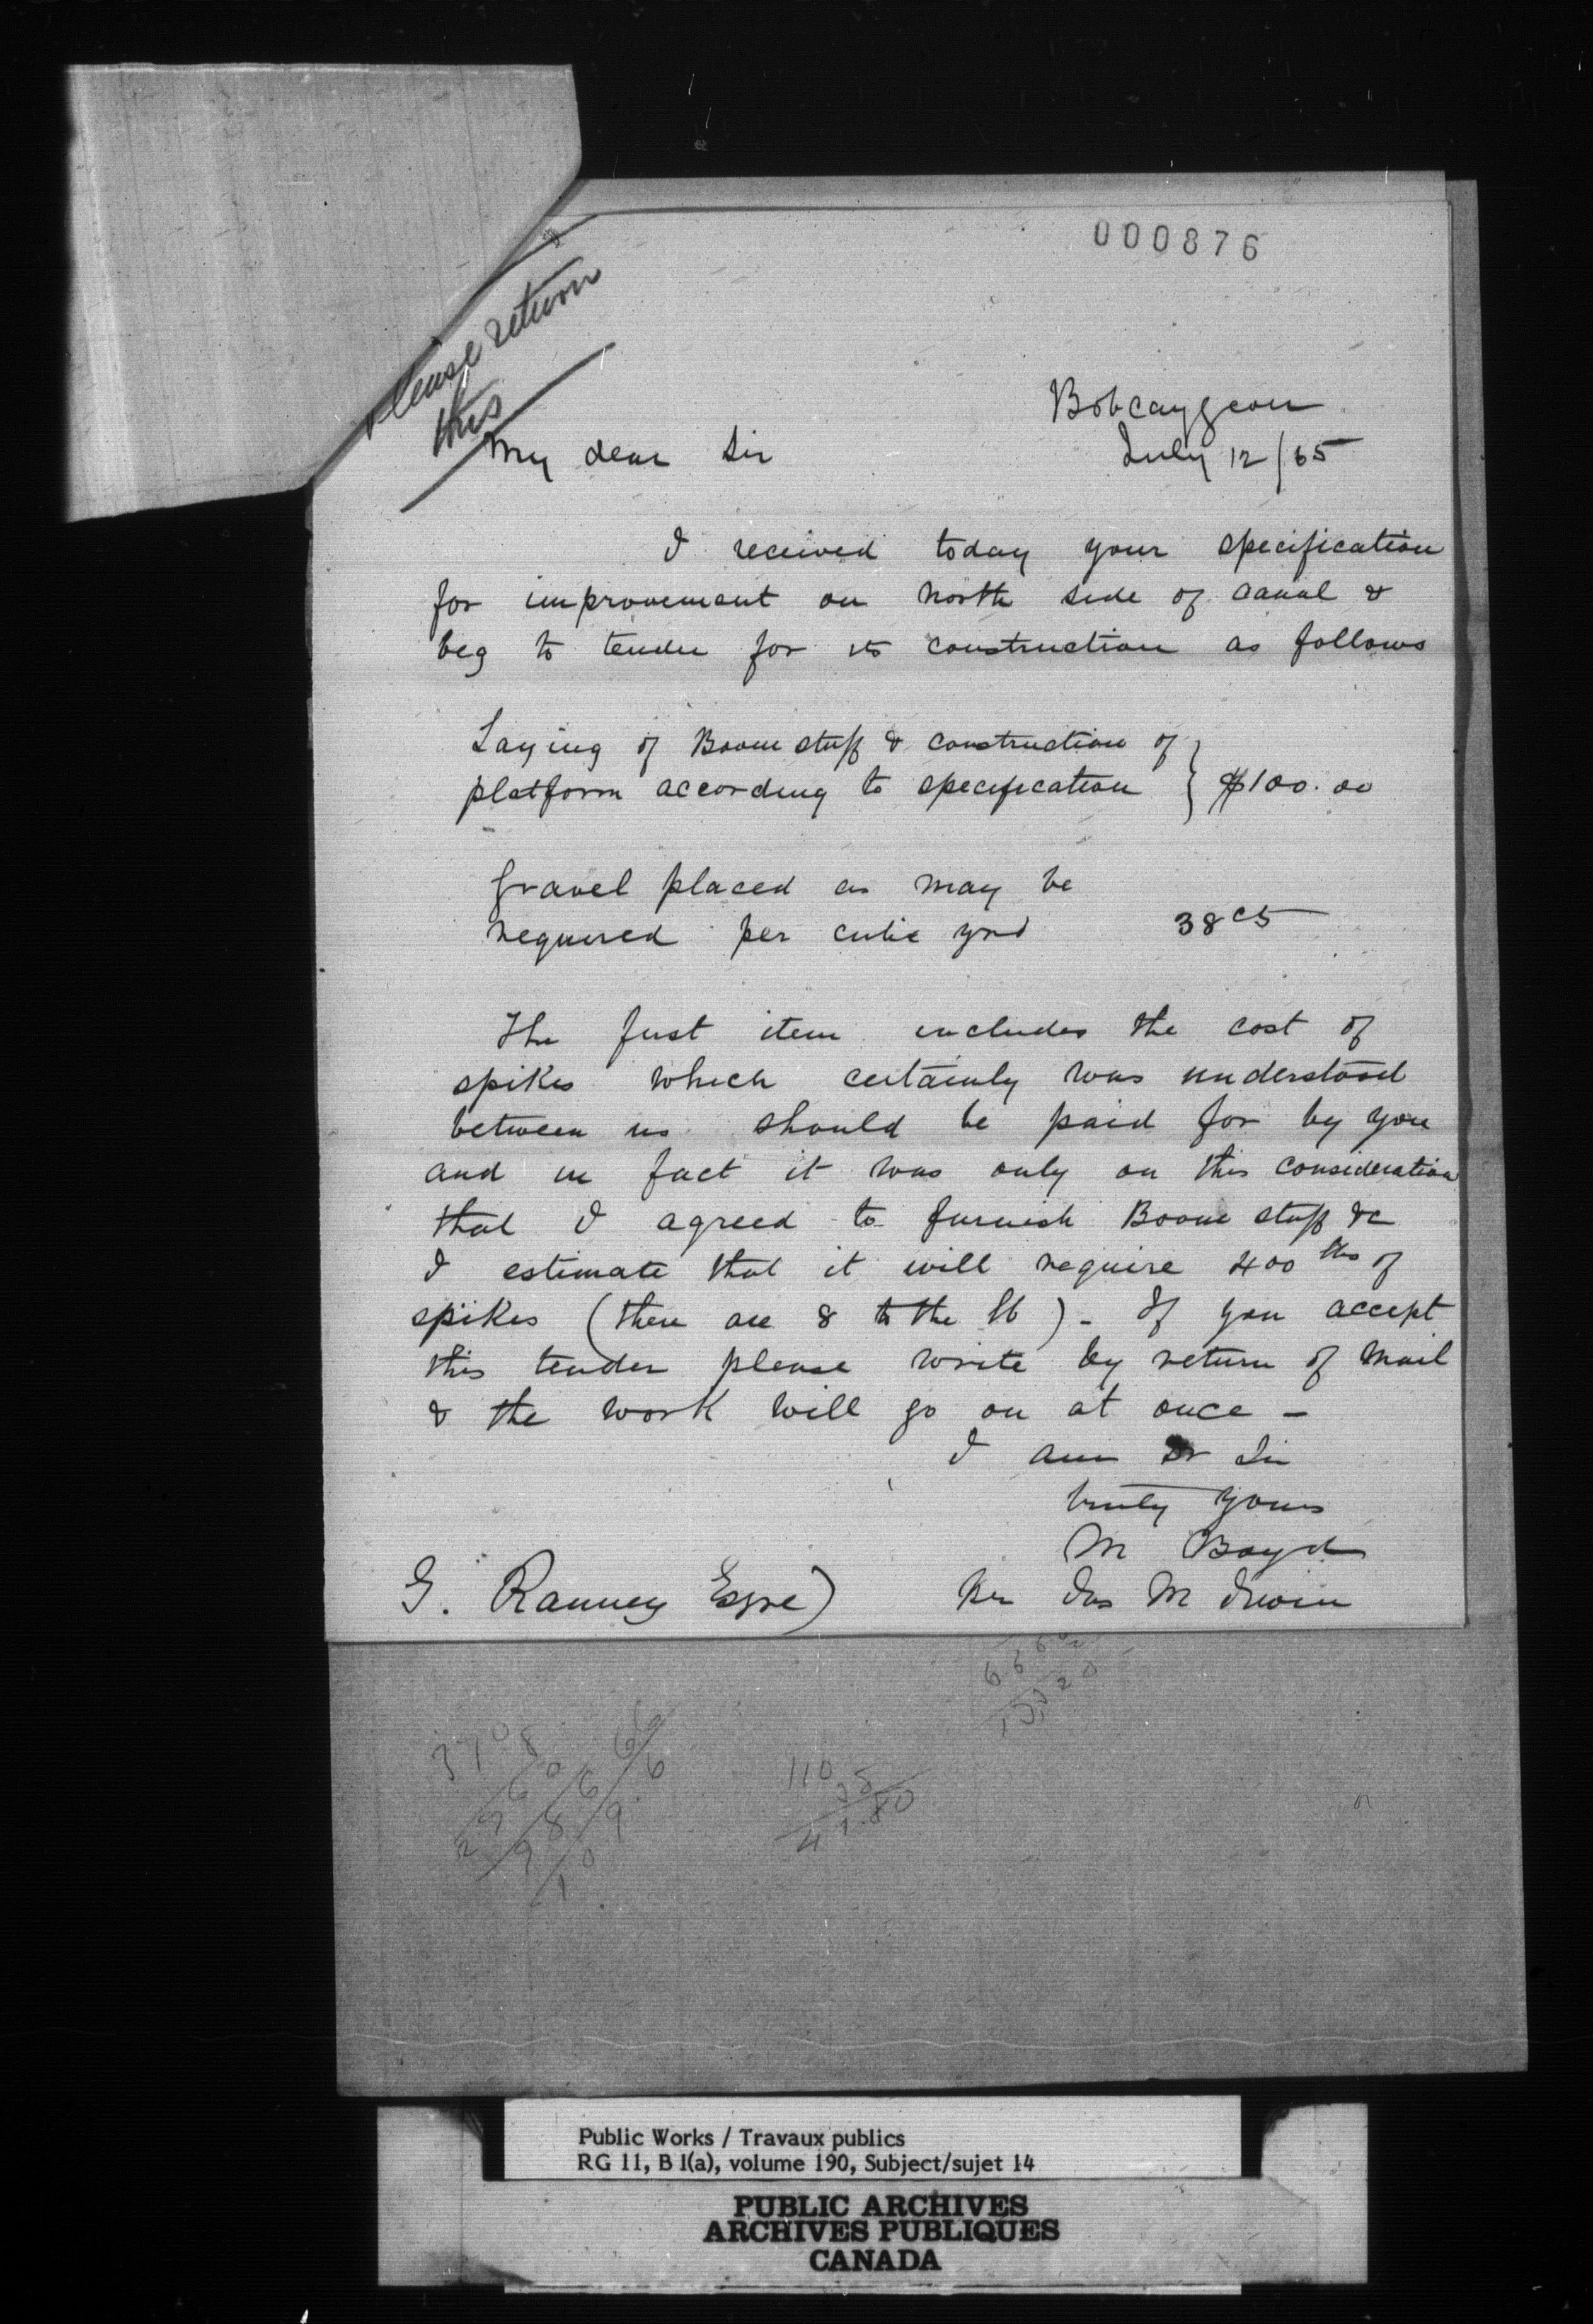 000876
please return
this
Bobcaygeon
My dear Sir
July 12/65
I received today your specification
for improvement on north side of canal &
beg to tender for its construction as follows
Laying of Boom stuff & construction of
platform according to specification } $100.00
Gravel placed as may be
required per cubic yrd 38 cts
The first item includes the cost of
spikes which certainly was understood
between us should be paid for by you
and in fact it was only on this consideration
that I agreed to furnish Boom stuff &c
I estimate that it will require 400 lbs of
spikes (there are 8 to the lb) - If you accept
this tender please write by return of mail
& the work will go on at once -
I am Dr Sir
truly yours
M Boyd
G. Ranney Esqre) Per Jas M Irwin
110
38
41.80
Public Works / Travaux publics
RG 11, B 1(a), volume 190, Subject/sujet 14
PUBLIC ARCHIVES
ARCHIVES PUBLIQUES
CANADA